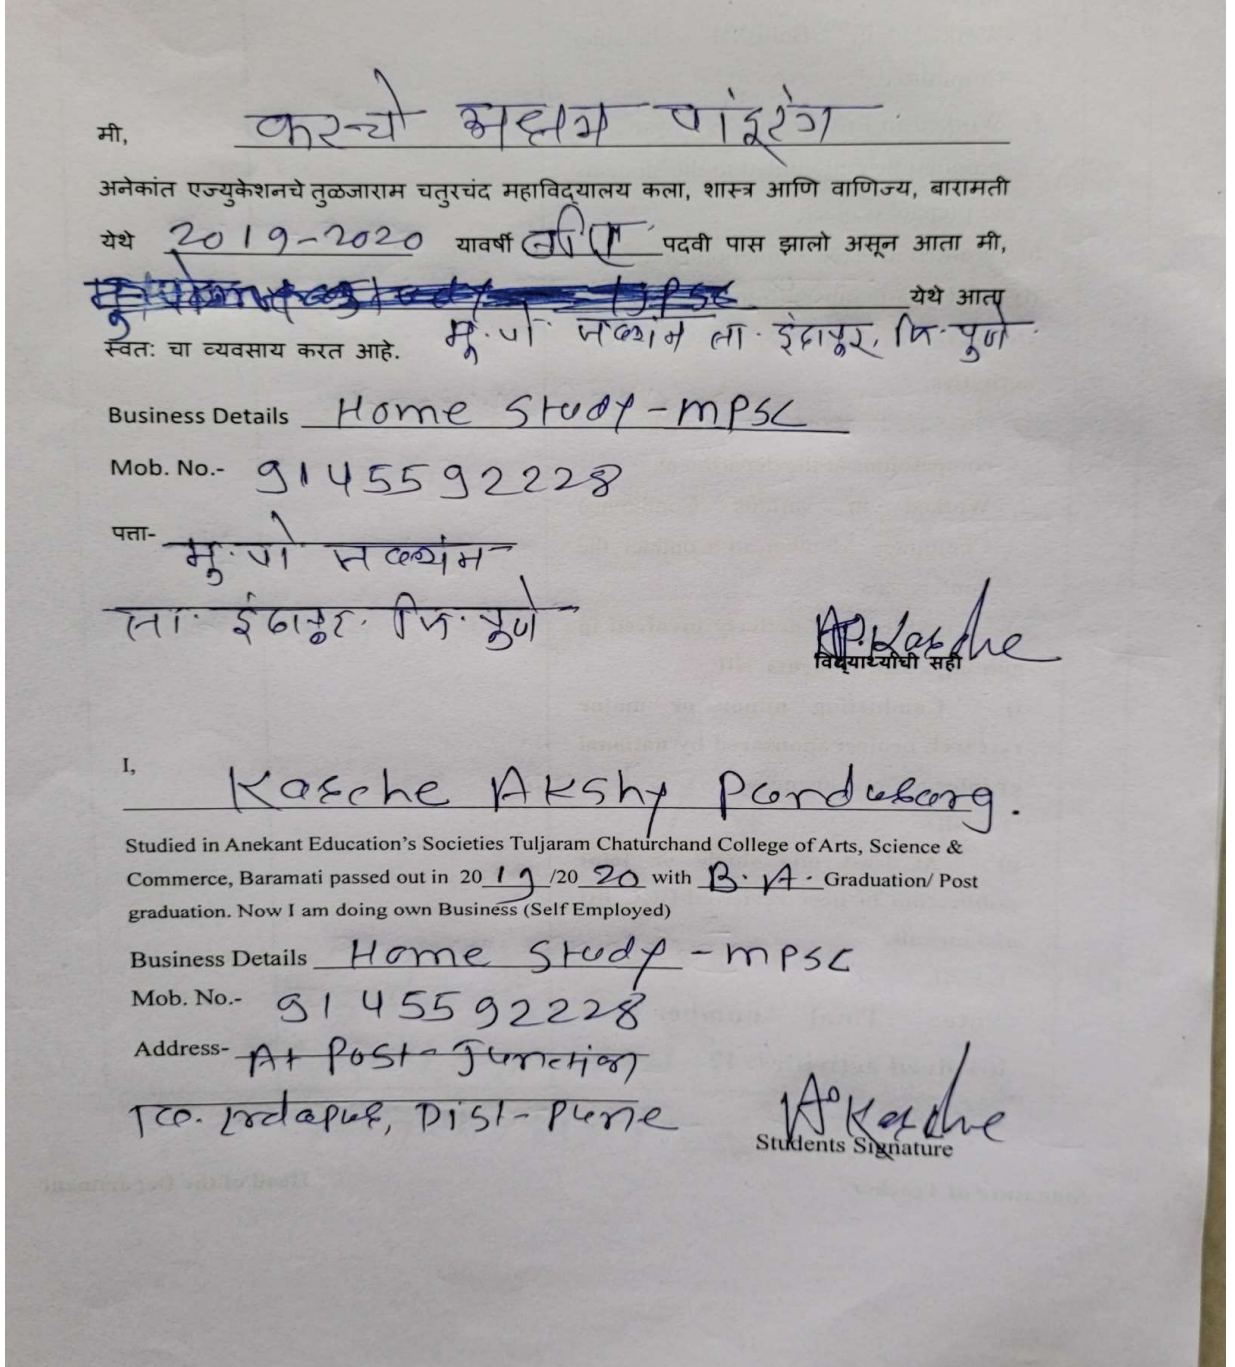 मी, करचे अक्षय पांडुरंग
अनेकांत एज्युकेशनचे तुळजाराम चतुरचंद महाविद्यालय कला, शास्त्र आणि वाणिज्य, बारामती
येथे 2019-2020 यावर्षी बी ए पदवी पास झालो असून आता मी,
येथे आता
मु. पो. जंक्शन ता. इंदापूर, जि. पुणे
स्वतः चा व्यवसाय करत आहे.
Business Details Home Study-MPSC
Mob. No.- 9145592228
पत्ता- मु. पो जंक्शन
ता. इंदापूर. जि. पुणे
A.P. Karche
विद्यार्थ्याची सही
I,
Karche Akshy Pandurang.
Studied in Anekant Education's Societies Tuljaram Chaturchand College of Arts, Science &
Commerce, Baramati passed out in 2019/2020 with B.A. Graduation/ Post
graduation. Now I am doing own Business (Self Employed)
Business Details Home Study-MPSC
Mob. No.- 9145592228
Address- At Post-Junction
Tq. Indapur, Dist-Pune
AP Karche
Students Signature